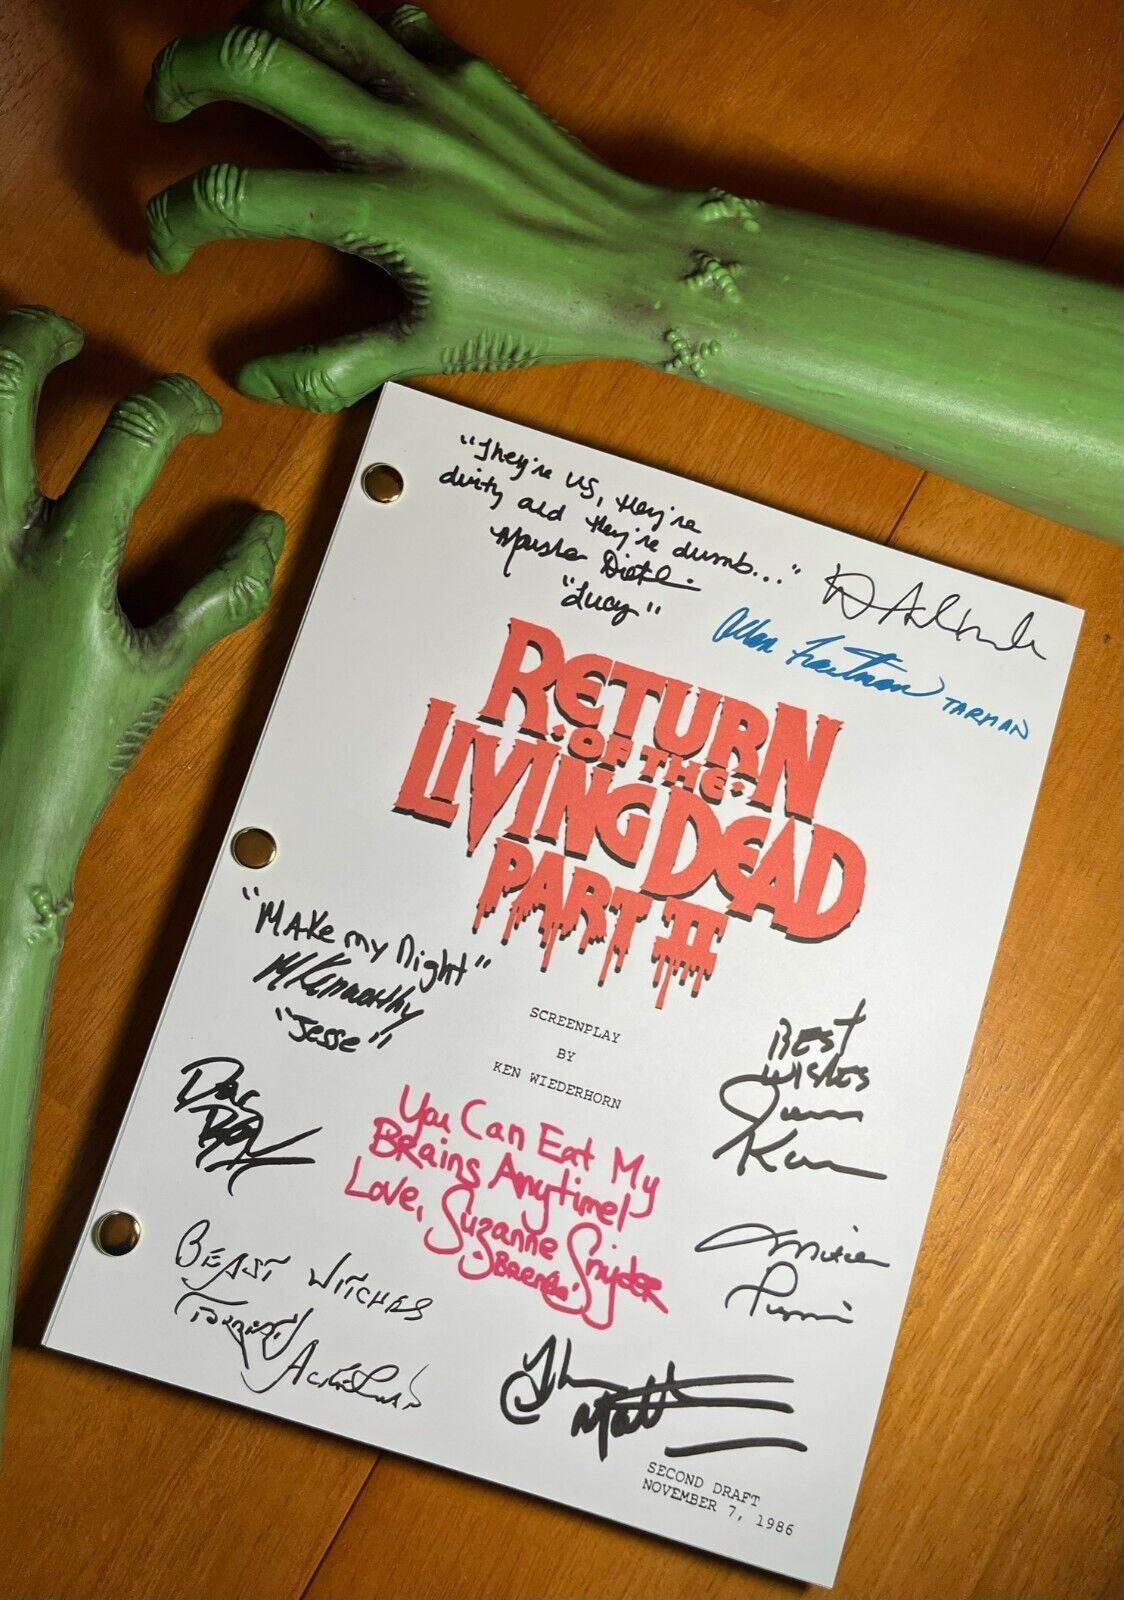 "They're us, they're
dirty and they're dumb..."
Marsha Dietlein
"Lucy"
Allan Trautman TARMAN
RETURN
·OF THE·
LIVING DEAD
PART II
SCREENPLAY
BY
KEN WIEDERHORN
"MAKe my Night"
MKenworthy
"Jesse"
BEST
WISHES
James
Karen
You Can Eat My
Brains Anytime!
Love, Suzanne Snyder
"Brenda"
BEAST WITCHES
Thom Matt
SECOND DRAFT
NOVEMBER 7, 1986